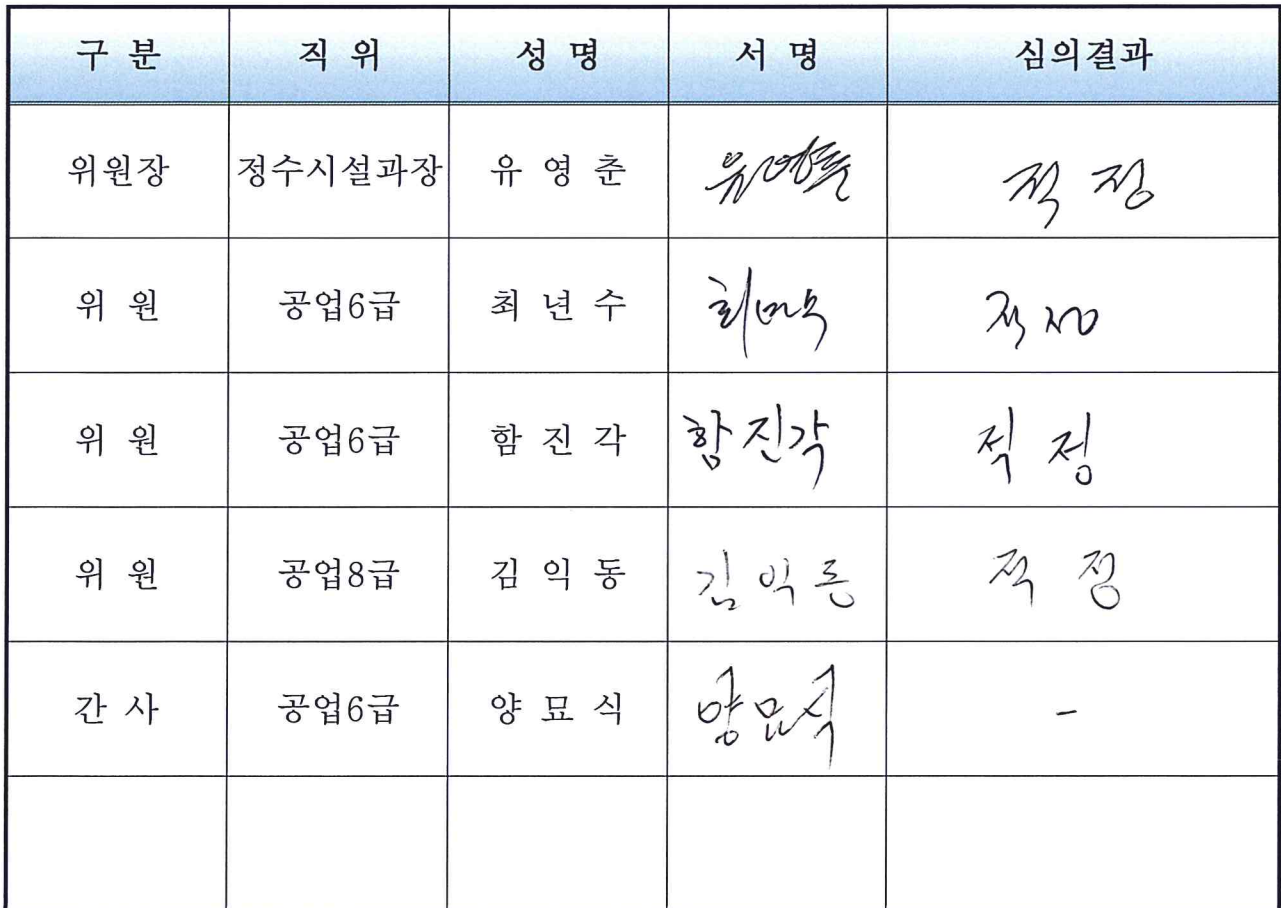 구 분 직 위 성 명 서 명 심의결과
위원장 정수시설과장 유 영 춘 유영춘 적 정
위 원 공업6급 최 년 수 최년수 적 정
위 원 공업6급 함 진 각 함진각 적 정
위 원 공업8급 김 익 동 김익동 적 정
간 사 공업6급 양 묘 식 양묘식 -